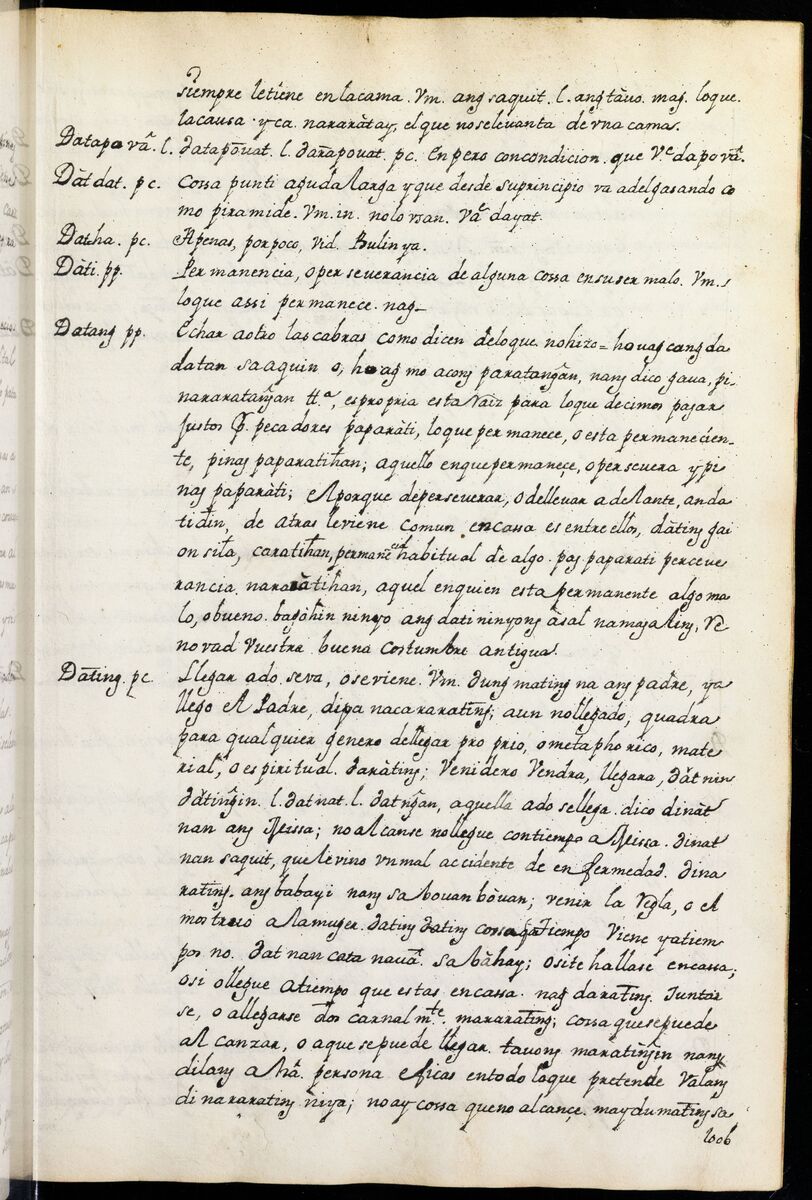 siempre letiene enlacama. Vm. ang saquit. l. ang tàuo. mag. loque.
lacausa. yca. nararàtay, el que noseleuanta de vna camas.
Datapova. l. datapōuat. l. darapouat. pc. Enpero concondicion. que Ve dapova.
Dàt dat. pc. Cossa punti aguda larga y que desde suprincipio va adelgasando co
mo piramide. Vm. in. nolo vsan. Va dayat.
Datha. pc. Apenas, porpoco, vid. Bulinya.
Dàti. pp. Permanencia, operseuerancia de alguna cossa ensuser malo. Vm. s
loque assi permanece. nag_
Datang pp. Echar aotro lascabras comodicen deloque nohizo = houag cang da
datan sa aquin o, houag mo acong paratangan, nang dico gaua, pi
nararatangan tta, espropria esta raiz para loque decimos pagar
justos p. pecadores paparàti, loque permanece, o esta permanecien
te, pinag paparatihan; aquello enquepermaneçe, operseuera y pi
nag paparàti; elporque deperseuerar, o delleuar adelante, anda
ti din, de atras leviene comun encassa es entre ellos, dàting gai
on sila, caratihan, permane habitual de algo. pag paparati perceue
rancia. nararàtihan, aquel enquien esta permanente algo ma
lo, obueno. bagohin ninyo ang dati ninyong àsal namagaling, Re
novad vuestra buena costumbre antigua.
Dating. pc. Llegar ado seva, oseviene. Vm. dungmating na ang padre, ya
llego el Padre, dipa nacararating; aun nollegado, quadra
para qualquier genero dellegar proprio, ometaphorico, mate
rial, o espiritual. daràting; Venidero Vendra, llegara, dàtnin
dàtingin. l. datnat. l. datngan, aquella ado sellega. dico dinàt
nan ang Missa; no alcanse nollegue contiempo a Missa. dinat
nan saquit, quelevino vnmal accidente de enfermedad. dina
rating. ang babayi nang sa bouan bòuan; venir la regla, o el
mostruo alamuger. dating dating cossa tiempo viene yatiem
pos no. datnan cata naua sa bàhay; o site hallase encassa;
osi ollegue atiempo que estas encassa. nag darating. Juntar
se, o allegarse dos carnalmte. mararating; cossa quesepuede
alcanzar, o aque sepuede llegar. tauong maratingin nang
dilang aha. persona eficas entodo loque pretende Valang
di nararating niya; no ay cossa queno alcançe. maydumating sa
loob